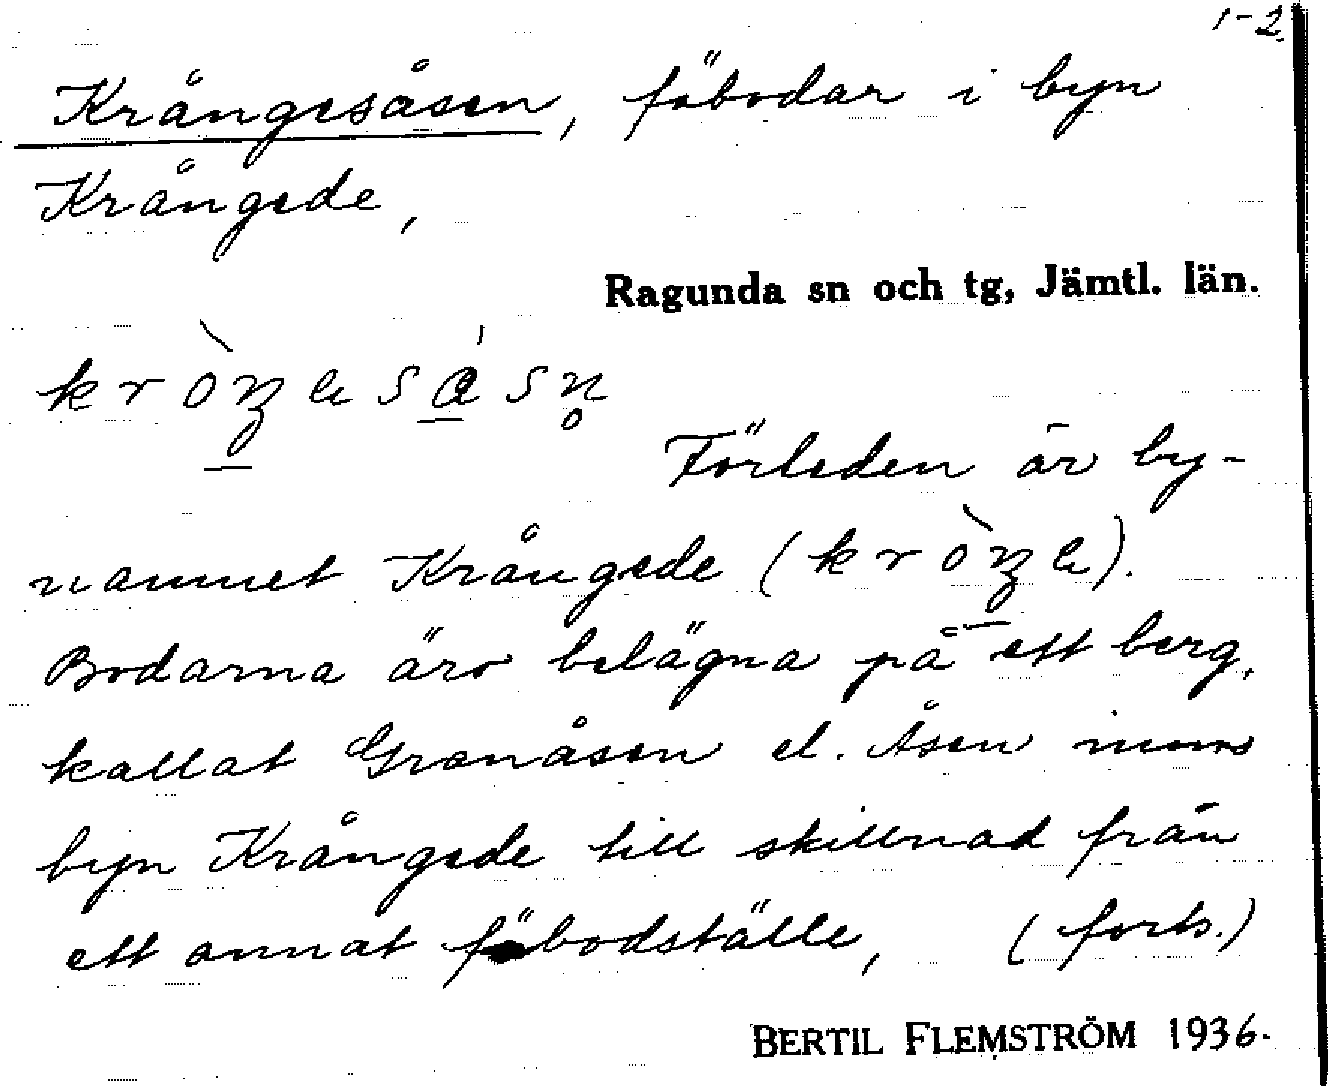 1-2.
Krångesåsen, föbodar i byn
Krångede,
Ragunda sn och tg, Jämtl. län.
Förleden är by-
namnet Krångede
Bodarna äro belägna på ett berg,
kallat Granåsen el. Åsen inom
byn Krångede till skillnad från
ett annat föbodställe, (forts.)
BERTIL FLEMSTRÖM 1936.